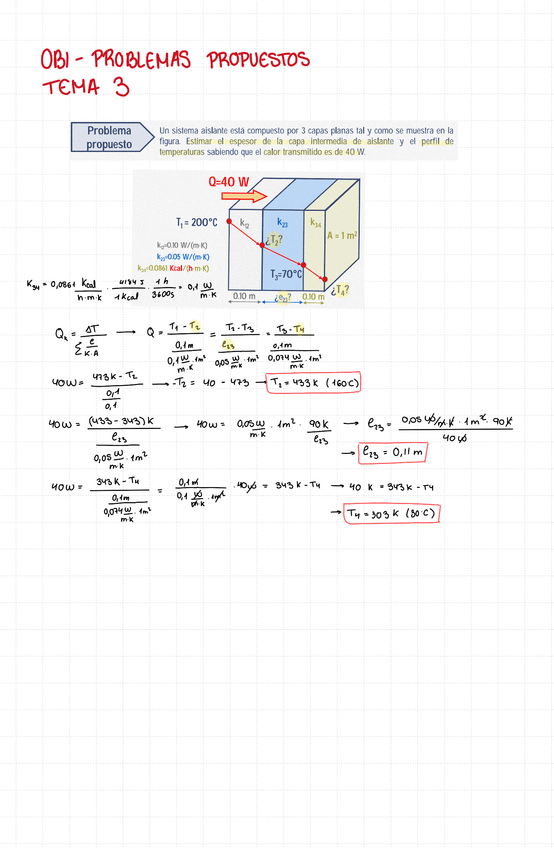 OBI - PROBLEMAS PROPUESTOS
TEMA 3
Problema propuesto
Un sistema aislante está compuesto por 3 capas planas tal y como se muestra en la
figura. Estimar el espesor de la capa intermedia de aislante y el perfil de
temperaturas sabiendo que el calor transmitido es de 40 W.
Q=40 W
T₁= 200°C
k₁₂ k₂₃ k₃₄
¿T₂?
A = 1 m²
k₁₂=0.10 W/(m·K)
k₂₃=0.05 W/(m·K)
k₃₄=0.0861 Kcal/(h·m·K)
T₃=70°C
¿T₄?
0.10 m ¿e₂₃? 0.10 m
K₃₄ = 0,0861 Kcal/h·m·K · 4184 J/1 Kcal · 1 h/3600s = 0,1 W/m·K
Qₖ = ΔT/Σ e/K·A → Q = T₁ - T₂/(0,1m/0,1 W/m·K · 1m²) = T₂-T₃/(e₂₃/0,05 W/m·K · 1m²) = T₃-T₄/(0,1m/0,074 W/m·K · 1m²)
40W = 473K - T₂/(0,1/0,1) → -T₂ = 40 - 473 → T₂ = 433 K (160C)
40W = (433 - 343) K/(e₂₃/0,05 W/m·K · 1m²) → 40W = 0,05 W/m·K · 1m² · 90K/e₂₃ → e₂₃ = 0,05 W/m·K · 1m² · 90K/40W
→ e₂₃ = 0,11 m
40W = 343K - T₄/(0,1m/0,074 W/m·K · 1m²) = 0,1m/(0,1 W/m·K · 1m²) · 40W = 343K - T₄ → 40 K = 343K - T₄
→ T₄ = 303 K (30·C)